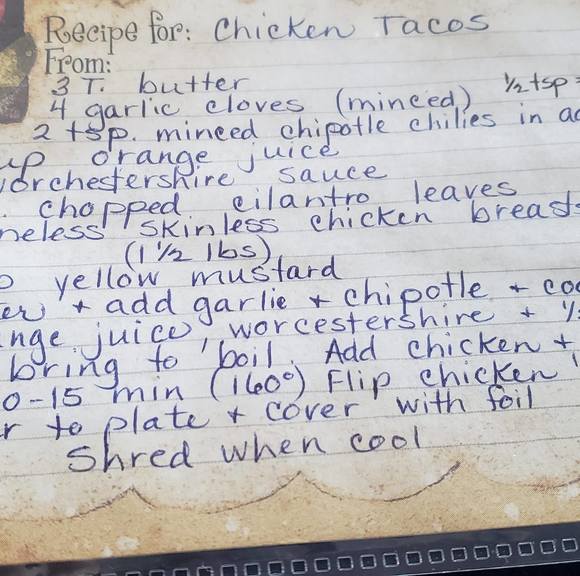 Recipe for: Chicken Tacos
From:
3 T. butter
4 garlic cloves (minced) ½ tsp =
2 tsp. minced chipotle chilies in ad
up orange juice
orchestershire sauce
. chopped cilantro leaves
neless skinless chicken breasts
(1 ½ lbs)
yellow mustard
er + add garlic + chipotle + coo
nge juice, worcestershire + ½
bring to boil. Add chicken +
0-15 min (160°) Flip chicken
r to plate + cover with foil
Shred when cool